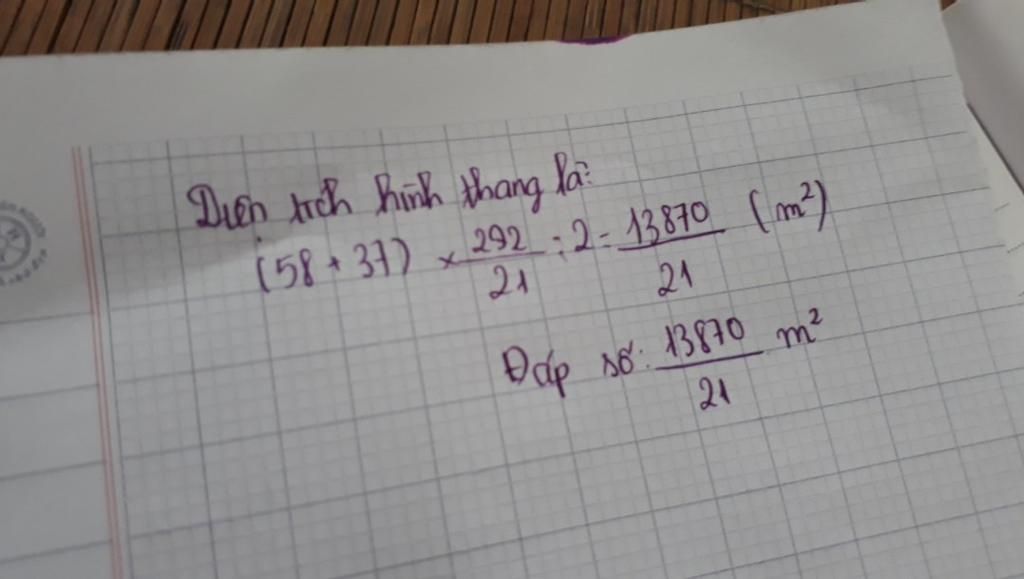 Diện tích hình thang là:
(58 + 37) × 292/21 : 2 = 13870/21 (m²)
Đáp số: 13870/21 m²